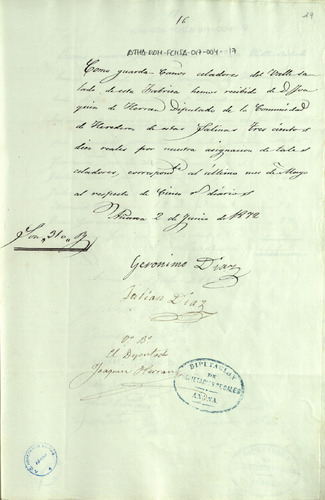 16
19
ATHA-DDH-FCHSA-017-004-17
Como guarda-Caños celadores del Valle Sa-
lado de esta Fabrica hemos recibido de D. Joa-
quin de Herran Diputado de la Comunidad
de Herederos de estas Salinas Tres cientos
diez reales por nuestra asignacion de tales
celadores, correspondte al último mes de Mayo
al respecto de Cinco rs diarios
Añana 2 de Junio de 1872
Son 310 rs
Geronimo Diaz
Julian Diaz
Vo Bo
El Diputado
Joaquin Herran
DIPUTACION
DE
AÑANA